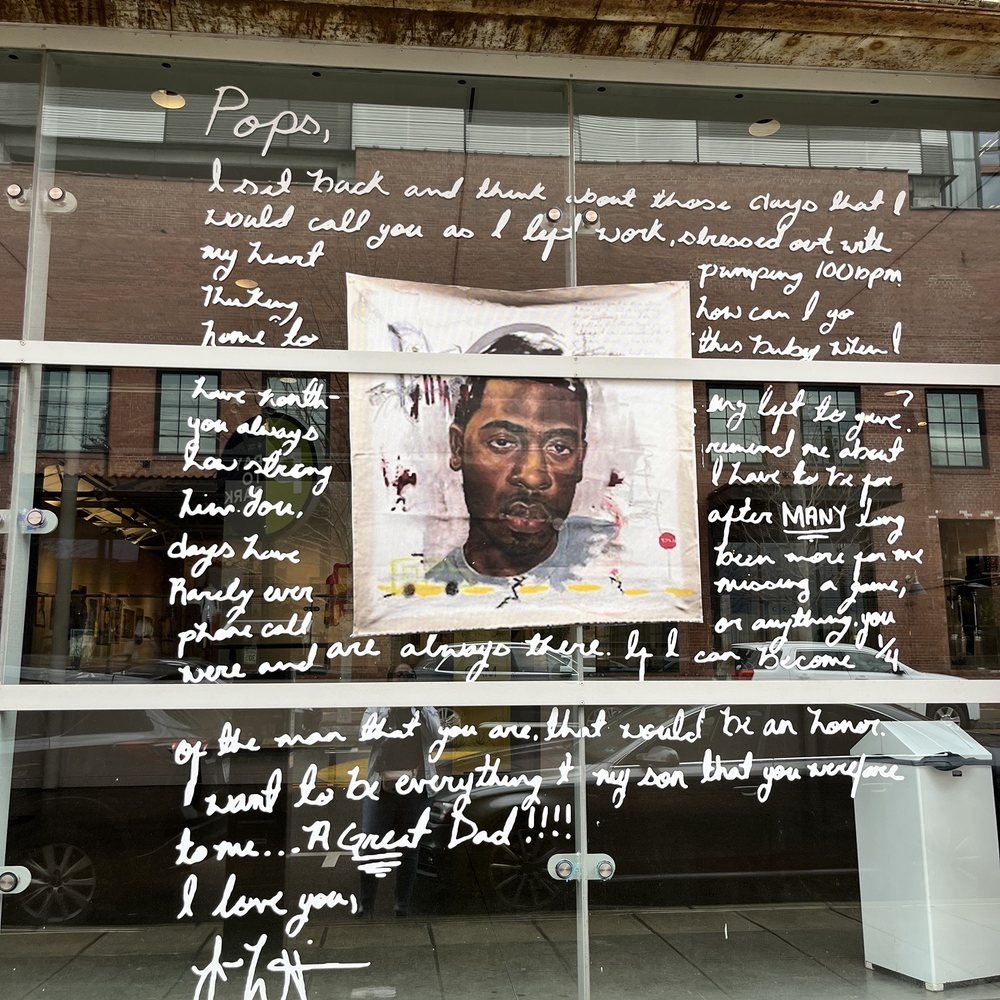 Pops,
I sit back and think about those days that I
would call you as I left work, stressed out with
my heart pumping 100bpm
Thinking how can I go
home to this baby when I
have noth- ing left to give?
you always remind me about
how strong I have to be for
him. You, after MANY long
days have been more for me
Rarely ever missing a game,
phone call or anything. you
were and are always there. If I can become 1/4
of the man that you are, that would be an honor.
I want to be everything to my son that you were/are
to me... A Great Dad!!!!
I love you,